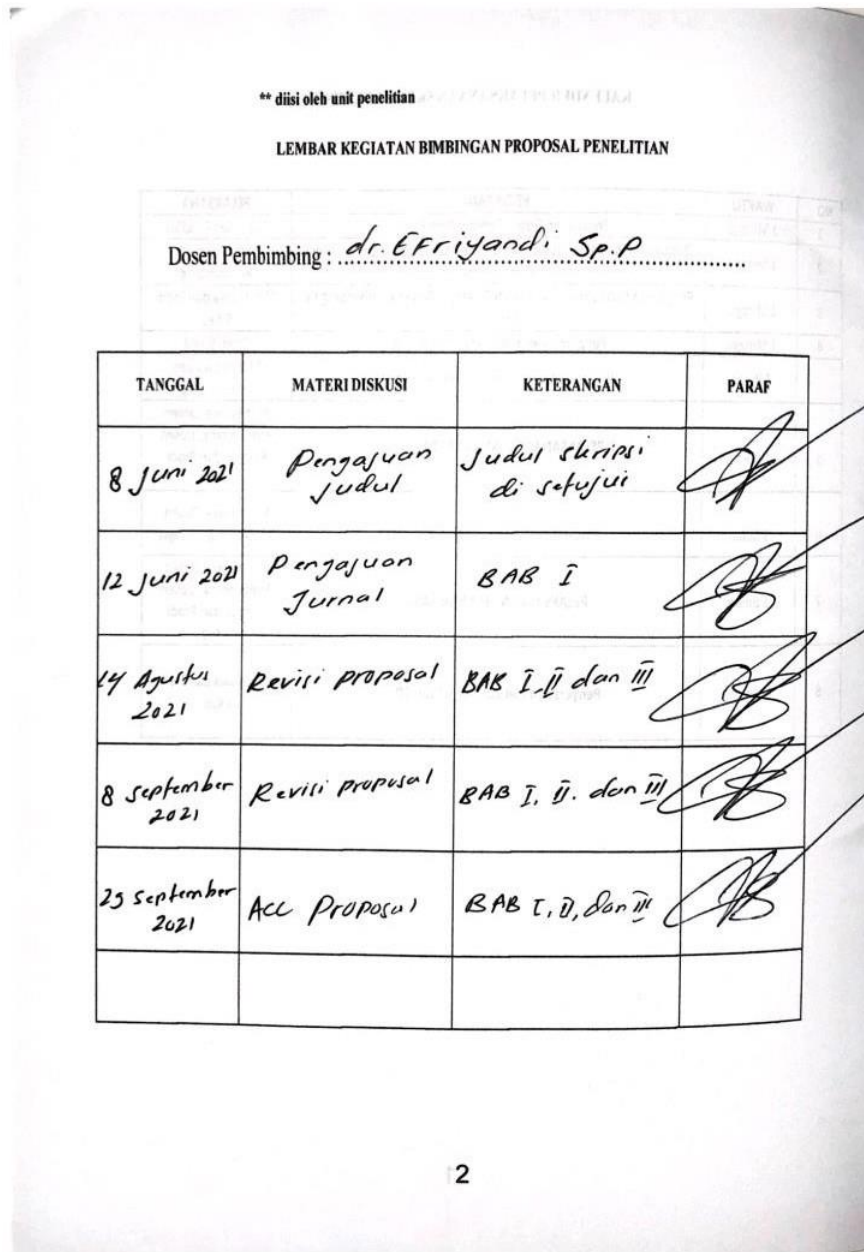 ** diisi oleh unit penelitian
LEMBAR KEGIATAN BIMBINGAN PROPOSAL PENELITIAN
Dosen Pembimbing : dr. EFriyandi Sp.P
TANGGAL MATERI DISKUSI KETERANGAN PARAF
8 Juni 2021 Pengajuan Judul skripsi
judul di setujui
12 Juni 2021 Pengajuan BAB I
Jurnal
14 Agustus Revisi proposal BAB I, II dan III
2021
8 September Revisi proposal BAB I, II. dan III
2021
September Acc Proposal BAB I, II, dan III
2021
2